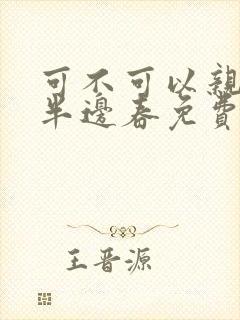 可不可以親
半邊春免費
王晋源